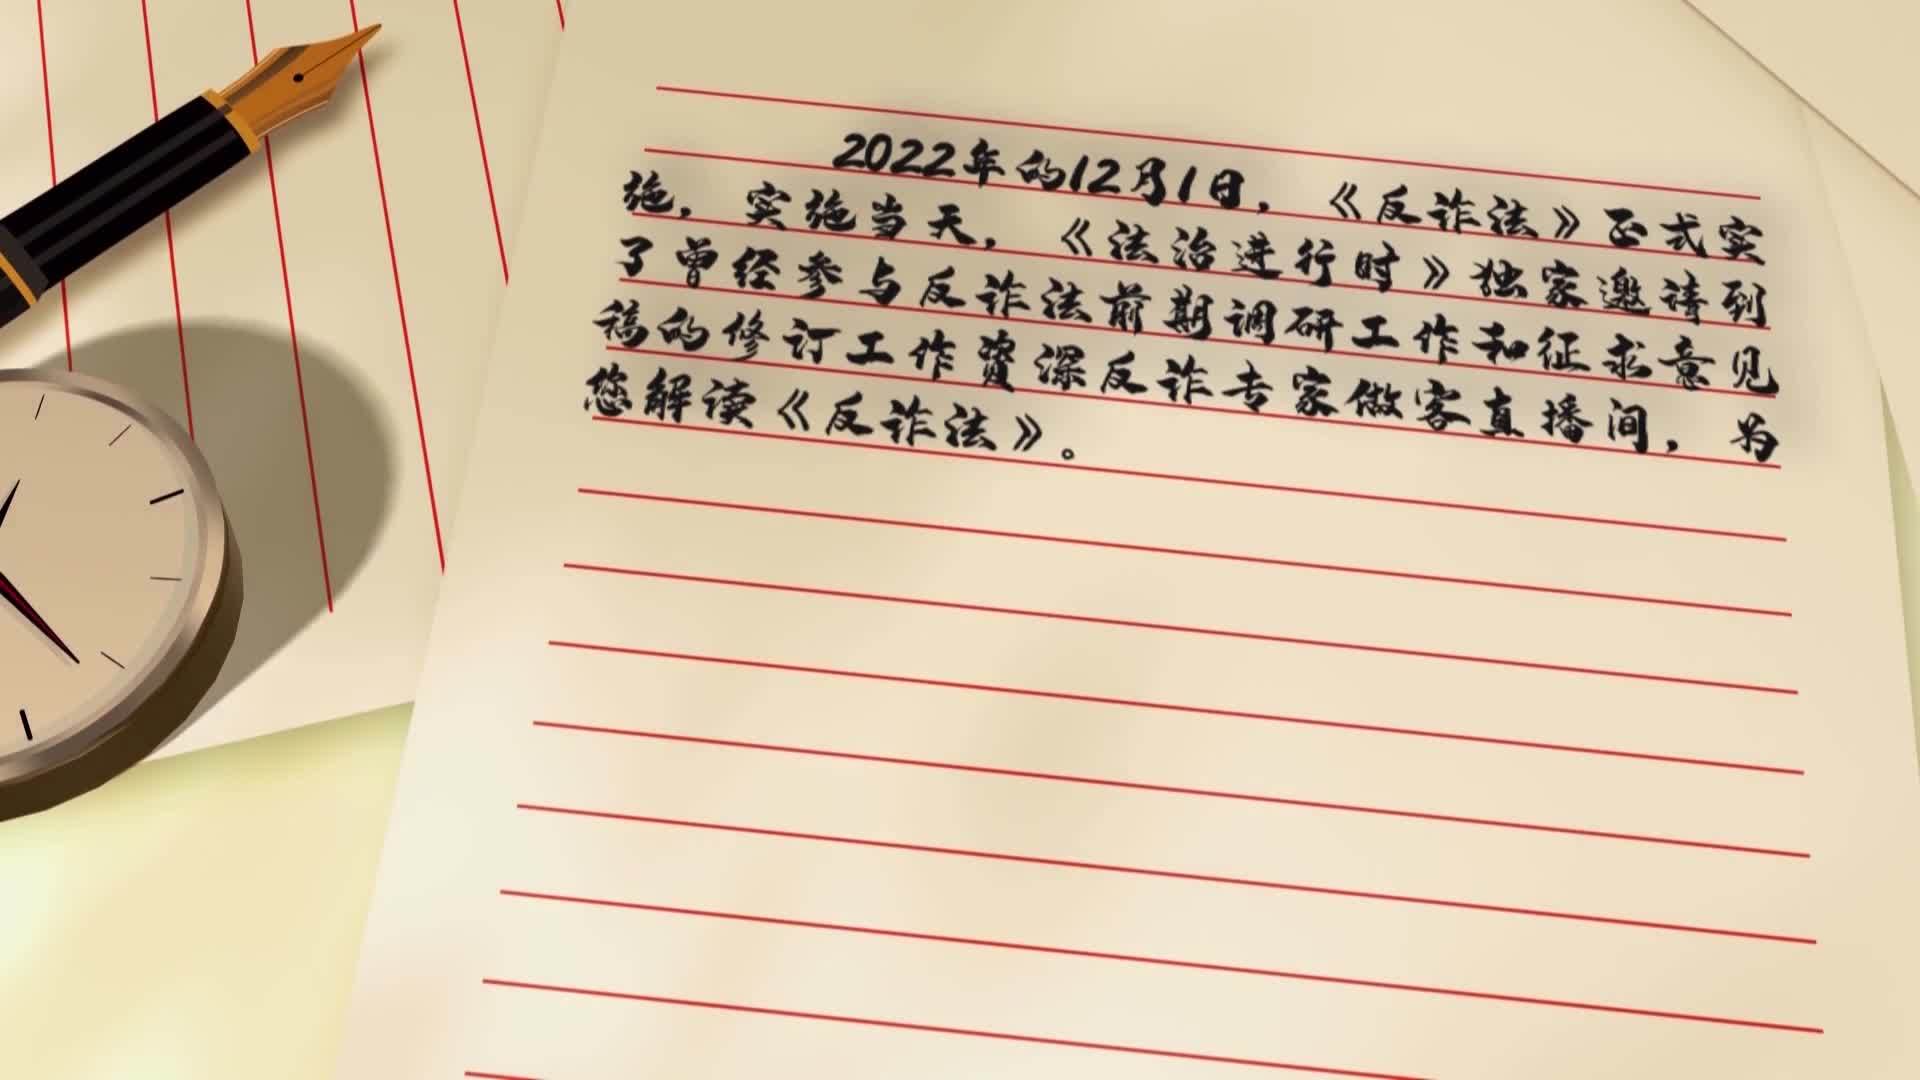 2022年的12月1日，《反诈法》正式实
施，实施当天，《法治进行时》独家邀请到
了曾经参与反诈法前期调研工作和征求意见
稿的修订工作资深反诈专家做客直播间，为
您解读《反诈法》。